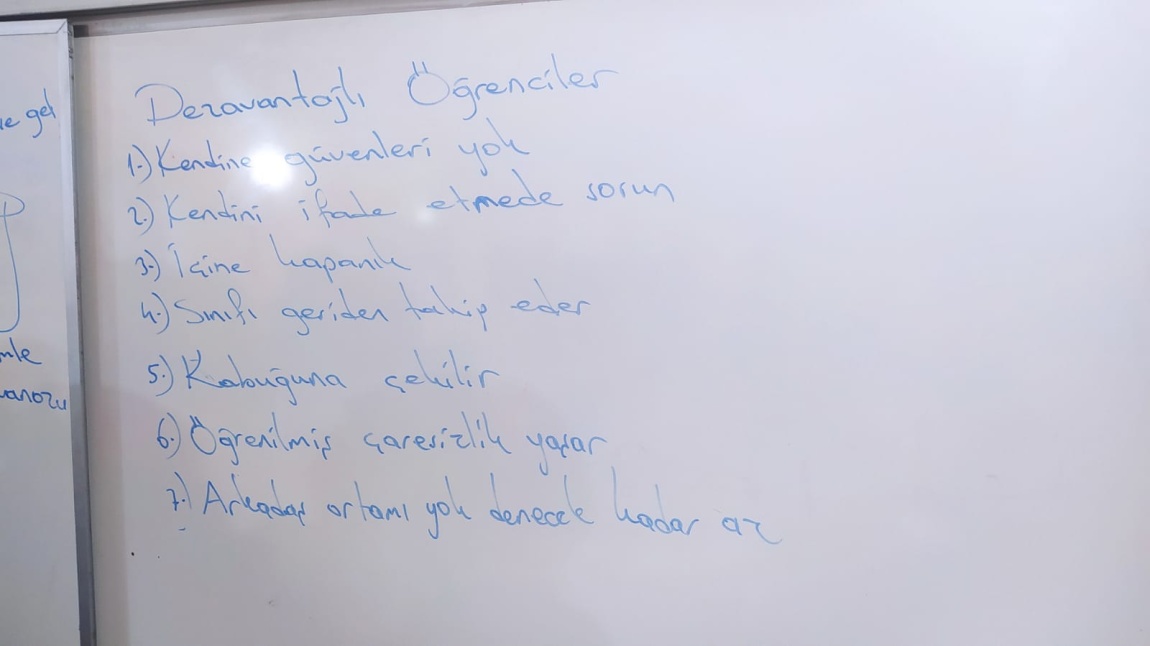 Dezavantajlı Öğrenciler
1.) Kendine güvenleri yok
2.) Kendini ifade etmede sorun
3.) İçine kapanık
4.) Sınıfı geriden takip eder
5.) Kabuğuna çekilir
6.) Öğrenilmiş çaresizlik yaşar
7.) Arkadaş ortamı yok denecek kadar az